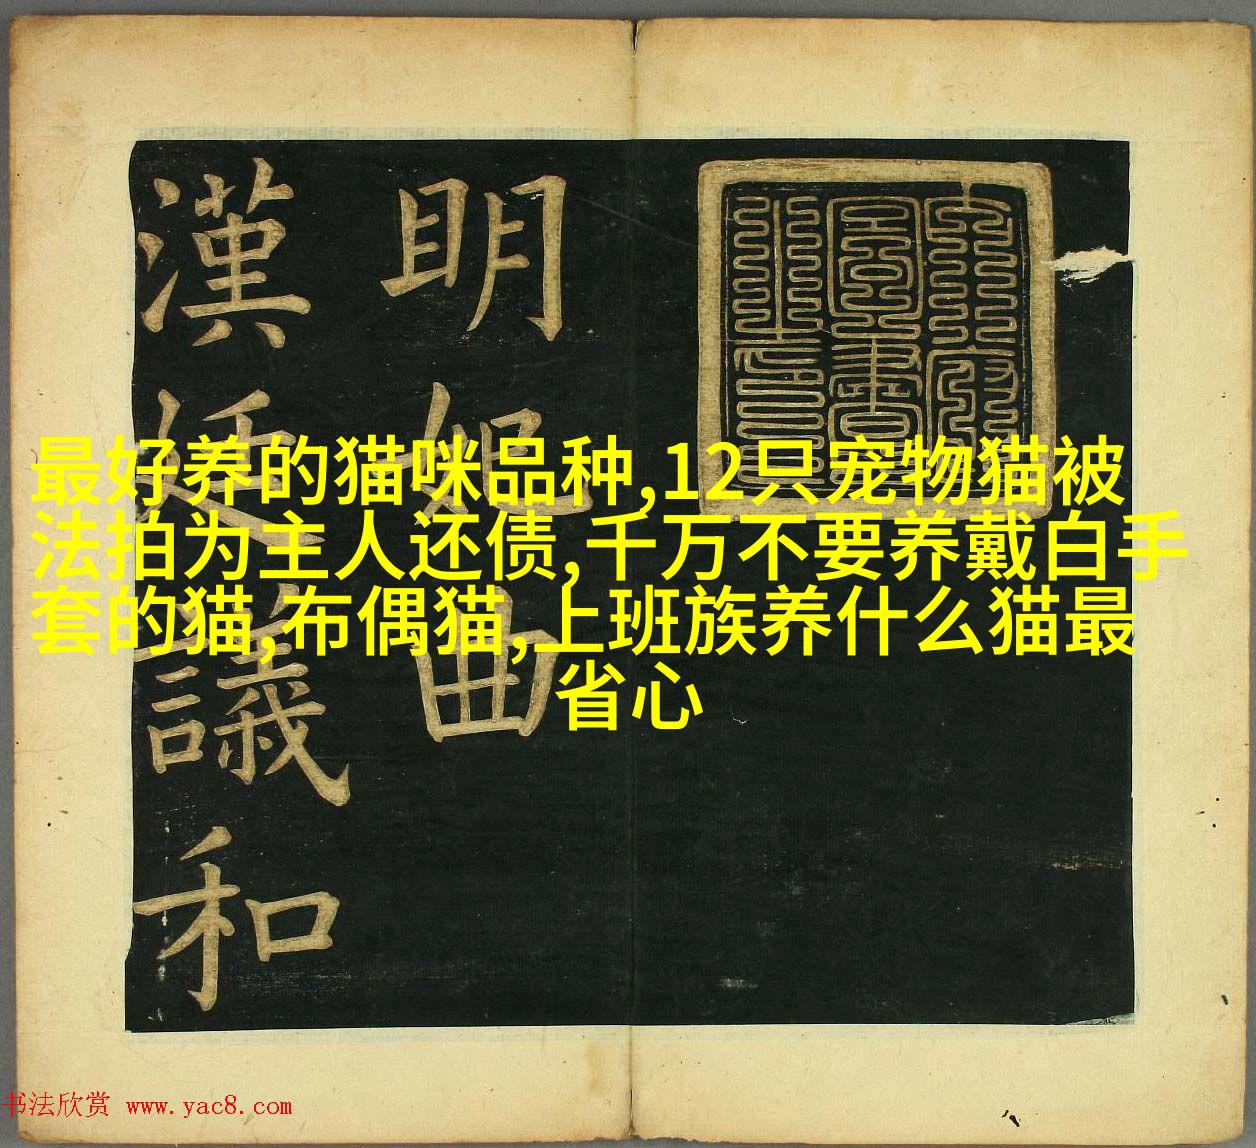 最好养的猫咪品种,12只宠物猫被
法拍为主人还债,千万不要养戴白手
套的猫,布偶猫,上班族养什么猫最
省心
明妃曲
漢廷議和
书法欣赏 www.yac8.com